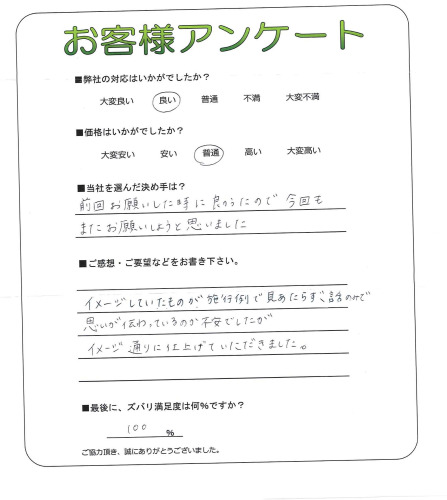 お客様アンケート
■弊社の対応はいかがでしたか？
大変良い 良い 普通 不満 大変不満
■価格はいかがでしたか？
大変安い 安い 普通 高い 大変高い
■当社を選んだ決め手は？
前回お願いした時に良かったので 今回も
またお願いしようと思いました
■ご感想・ご要望などをお書き下さい。
イメージしていたものが施行例で見あたらずご話のみで
思いが伝わっているのか不安でしたが
イメージ通りに仕上げていただきました。
■最後に、ズバリ満足度は何%ですか？
100 %
ご協力頂き、誠にありがとうございました。